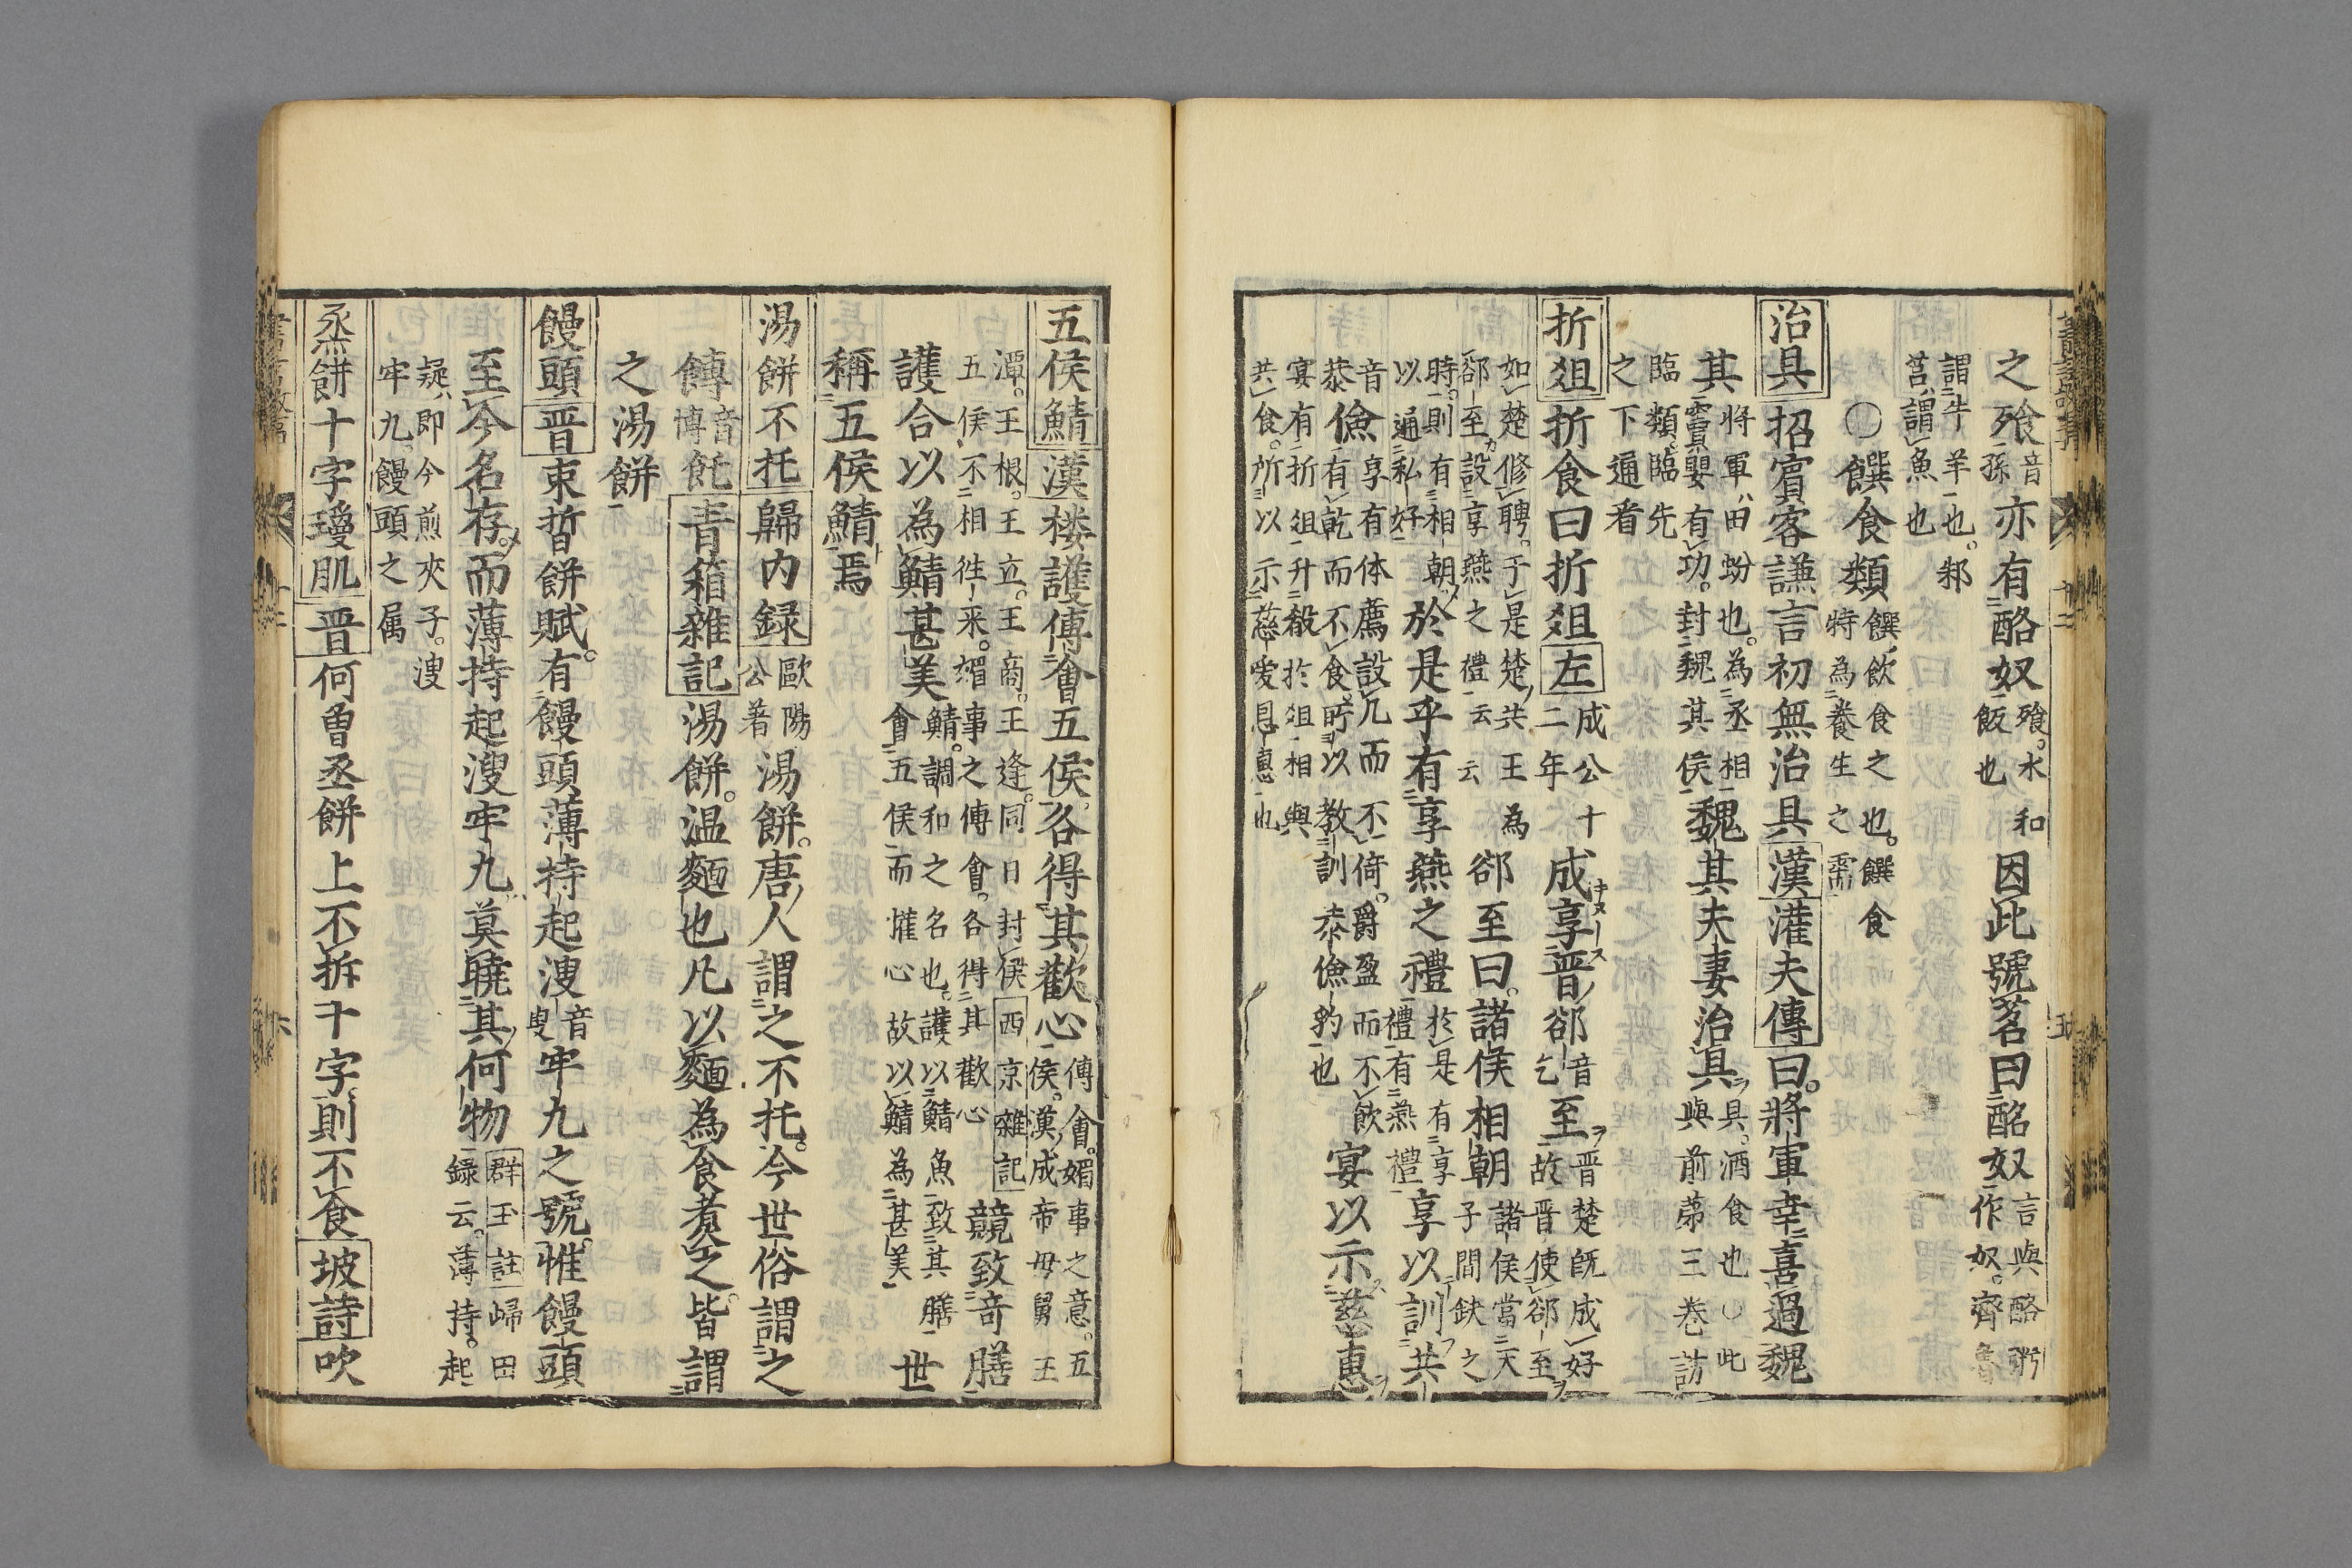 之飱音孫亦有酪奴飱。水和飯也因此號茗曰酩奴言與酪粥作奴。齊魯
謂牛羊也。邾莒謂魚也
〇饌食類饌飲食之也。饌食特為養生之需
治具 招賓客謙言初無治具漢灌夫傳曰。將軍幸喜過魏
其將軍田蚡也。為丞相竇嬰有功。封魏其侯魏其夫妻治具具。酒食也〇此與前第三卷訪
臨類。臨先之下通看
折爼 折食曰折爼左成公十二年成享晋郤音乞至晋楚既成好故晋使郤至
如楚修聘。于是楚共王為郤至設享燕之禮云云郤至曰。諸侯相朝諸侯當天子間缺之
時。則有相朝以通私好於是乎有享燕之禮於是有享禮有燕禮享以訓共
音恭儉享有体薦設几而不倚。爵盈而不飲有乾而不食所以教訓恭儉豹也宴以示慈惠
宴有折爼升殽於爼相與共食。所以示慈愛恩惠也
五侯鯖漢楼護傳會五侯各得其歡心傳會。媚事之意。五侯。漢成帝母舅王
潭。王根。王立。王商。王逢。同日封侯五侯不相徃来。媚事之傳會。各得其歡心西京雜記競致竒膳
護合以為鯖甚美鯖。調和之名也。護以鯖魚致其膳會五侯而惟心故以鯖為甚美世
稱五侯鯖焉
湯餅不托歸内録歐陽公著湯餅。唐人謂之不托。今世俗謂之
餺音博飥青箱雜記湯餅。温麵也凡以麵為食煮之。皆謂
之湯餅
饅頭晋束晳餅賦。有饅頭薄持起溲音叟牢九之號。惟饅頭
至今名存。而薄持起溲牢九莫曉其何物群玉註歸田録云。薄持。起
疑即今煎夾子。溲牢九。饅頭之属
烝餅十字璦肌晋何曽烝餅上不拆十字則不食坡詩吹